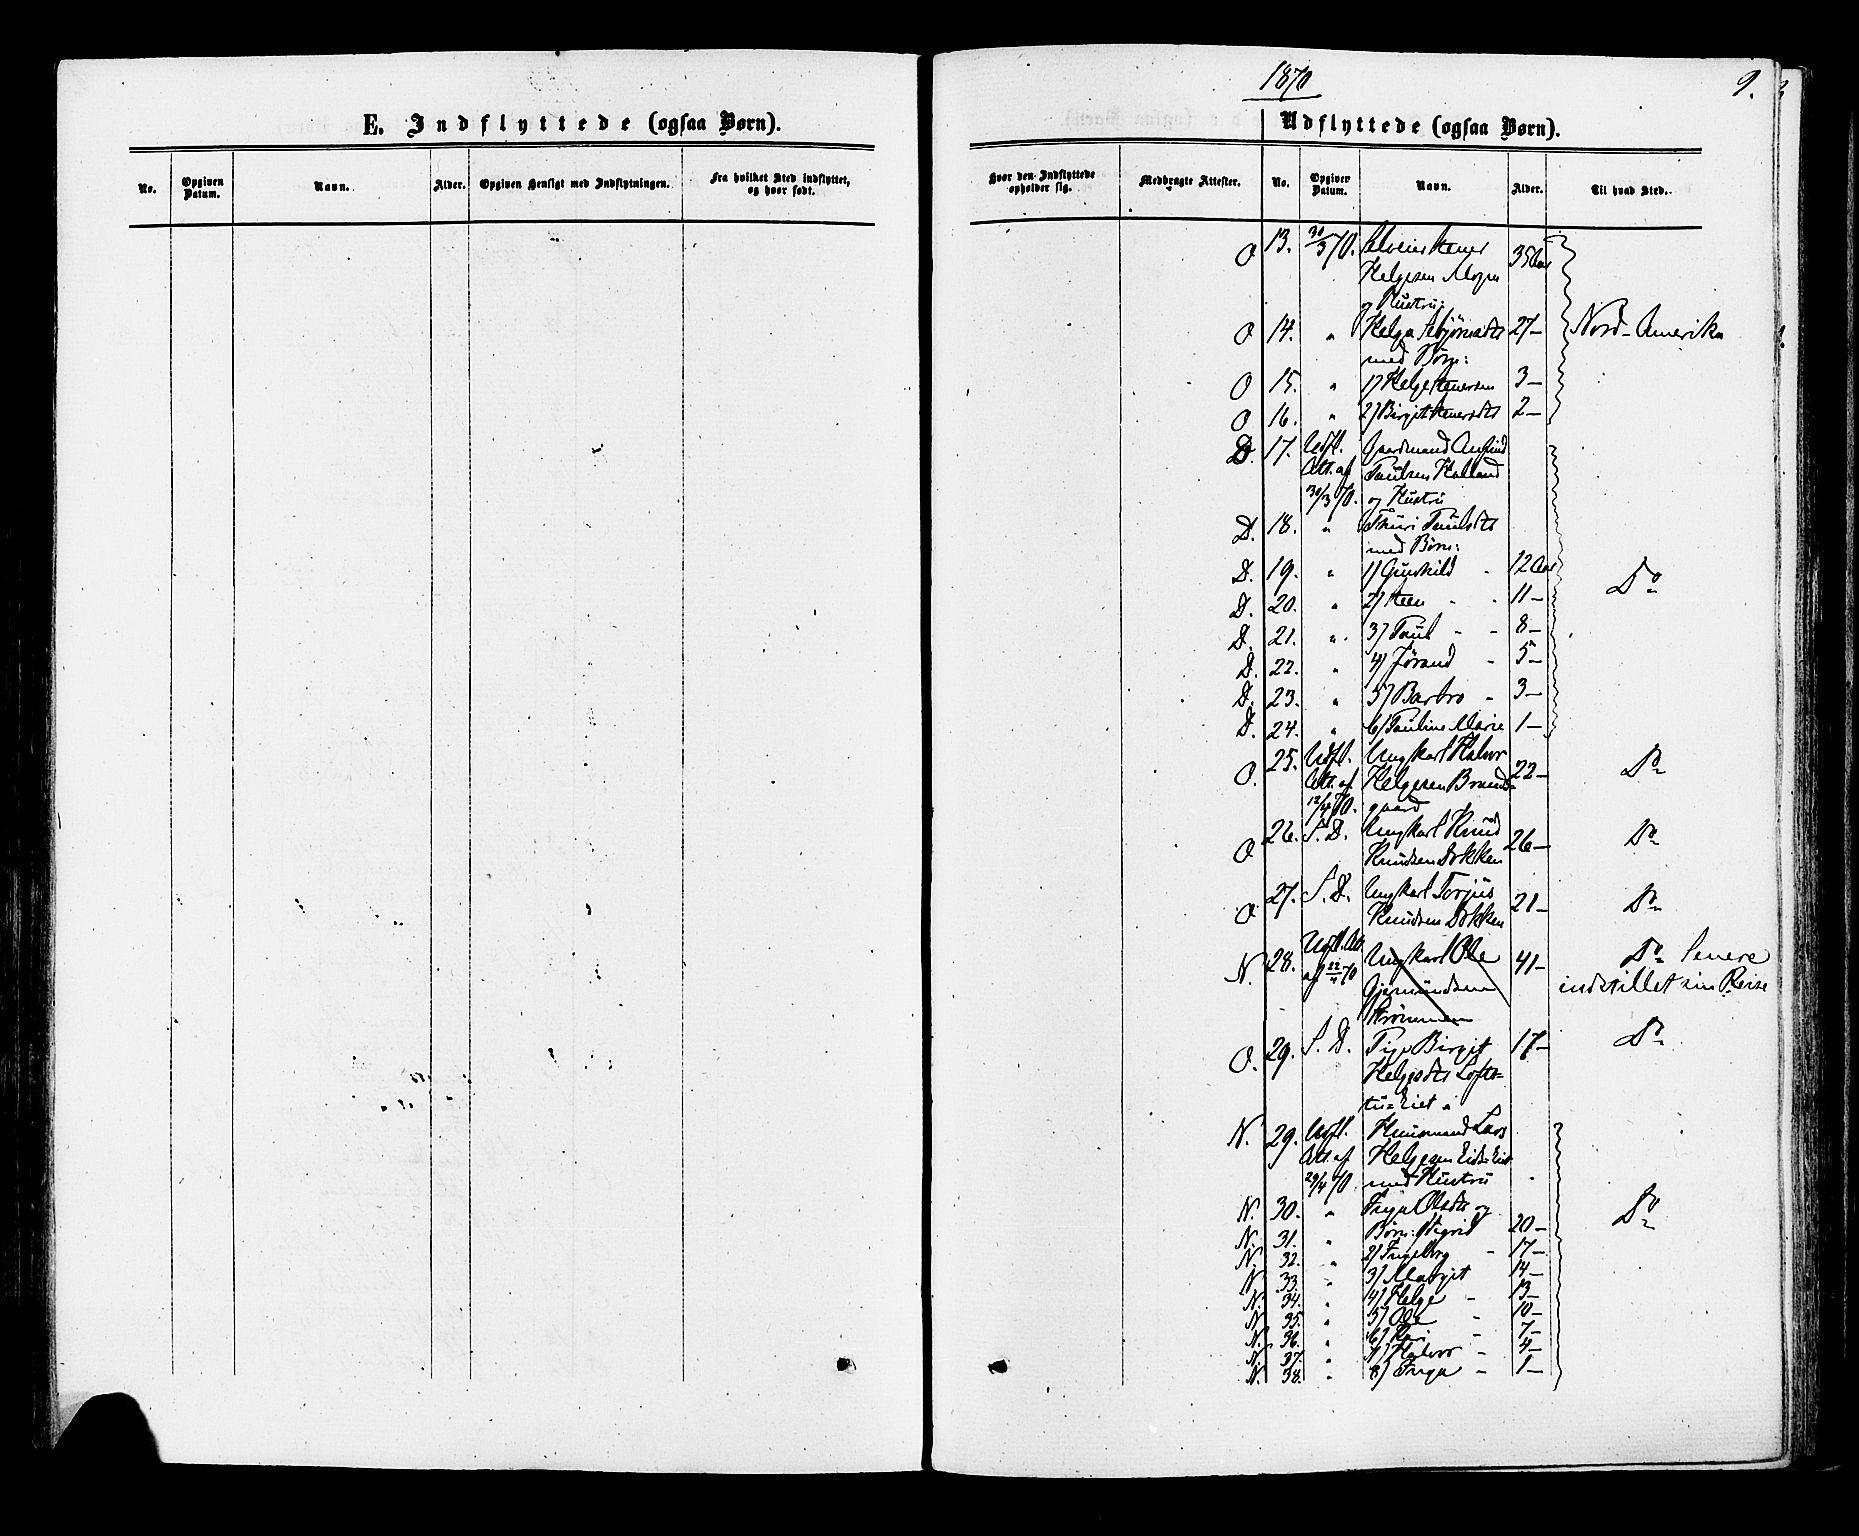 1870
9.
E. Indflyttede (ogsaa Børn).
No.
Opgiven Datum.
Navn.
Alder.
Opgiven Hensigt med Indflytningen.
Fra hvilket Sted indflyttet, og hvor født.
Udflyttede (ogsaa Børn).
Hvor den Indflyttede opholder sig.
Medbragte Attester.
No.
Opgiven Datum.
Navn.
Alder.
Til hvad Sted.
O 13. 30/3 70. 35 Aar
Helgesen
og Hustru:
O 14. " Helga 27 - Nord-Amerika
med Børn:
O 15. " 1) Helge Stenersen 3 -
O 16. " 2) Birgit Stenersdtr 2 -
D. 17. Udfl. Gaardmand
Att. af Paulsen Halland
30/3 70. og Hustru
D. 18. " Thuri Paulsdtr
med Børn:
D. 19. " 1) Gunhild " 12 Aar Do
D. 20. " 2) Steen " " 11 -
D. 21. " 3) Paul " " 8 -
D. 22. " 4) Jørand " 5 -
D. 23. " 5) Barbro " 3 -
D. 24. " 6) Pauline Marie 1 -
O. 25. Udfl. Ungkarl Halvor
Att. af Helgesen Braand- 22 - Do
12/4 70. gaard
O. 26. S. D. Ungkarl Knud
Knudsen Dokken 26 - Do
O. 27. S. D. Ungkarl Torjus
Knudsen Dokken 21 - Do
N. 28. Udfl. Att. Ungkarl Ole 41 - Do Senere
af 22/4 70 Gjermundsen indstillet sin Reise
O. 29. S. D. Pige Birgit 17 - Do
Helgesdtr Lofts-
N. 29. Udfl. Huusmand Lars
Att. af Helgesen
29/4 70. med Hustru
N. 30. " Inga Olsdtr og Do
N. 31. " Børn: Sigrid 20 -
N. 32. " 2) Ingeborg " 17 -
N. 33. " 3) Margit 14 -
N. 34. " 4) Helge " 13 -
N. 35. " 5) Ole " 10 -
N. 36. " 6) Kari " 7 -
N. 37. " 7) Halvor " 4 -
N. 38. " 8) Inga " 1 -